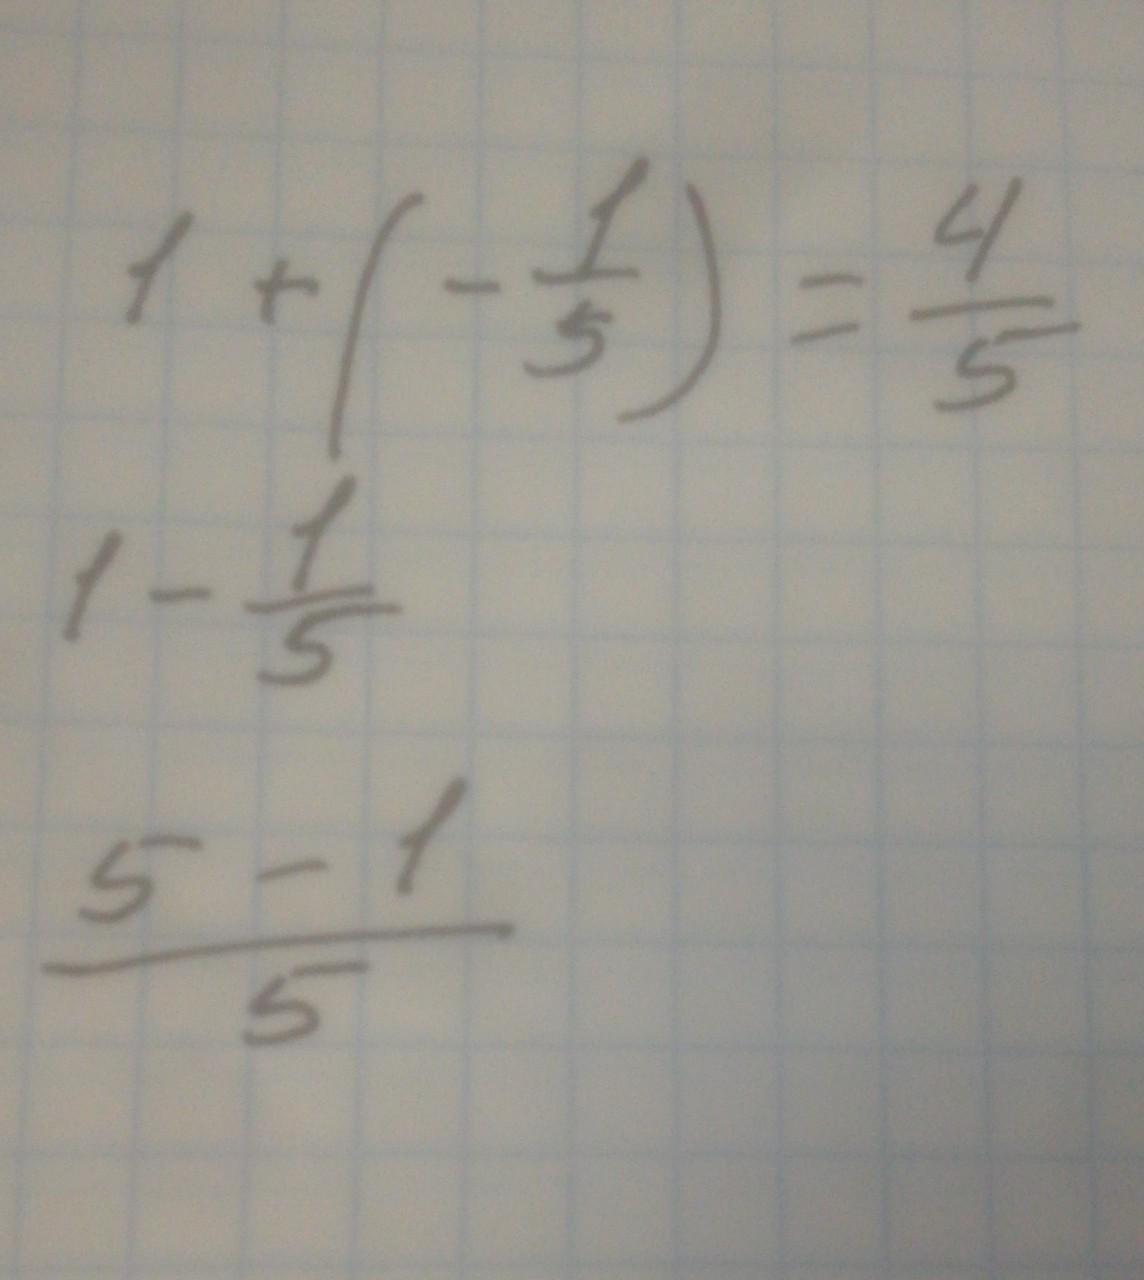 1 + (- 1/5) = 4/5
1 - 1/5
5 - 1
5